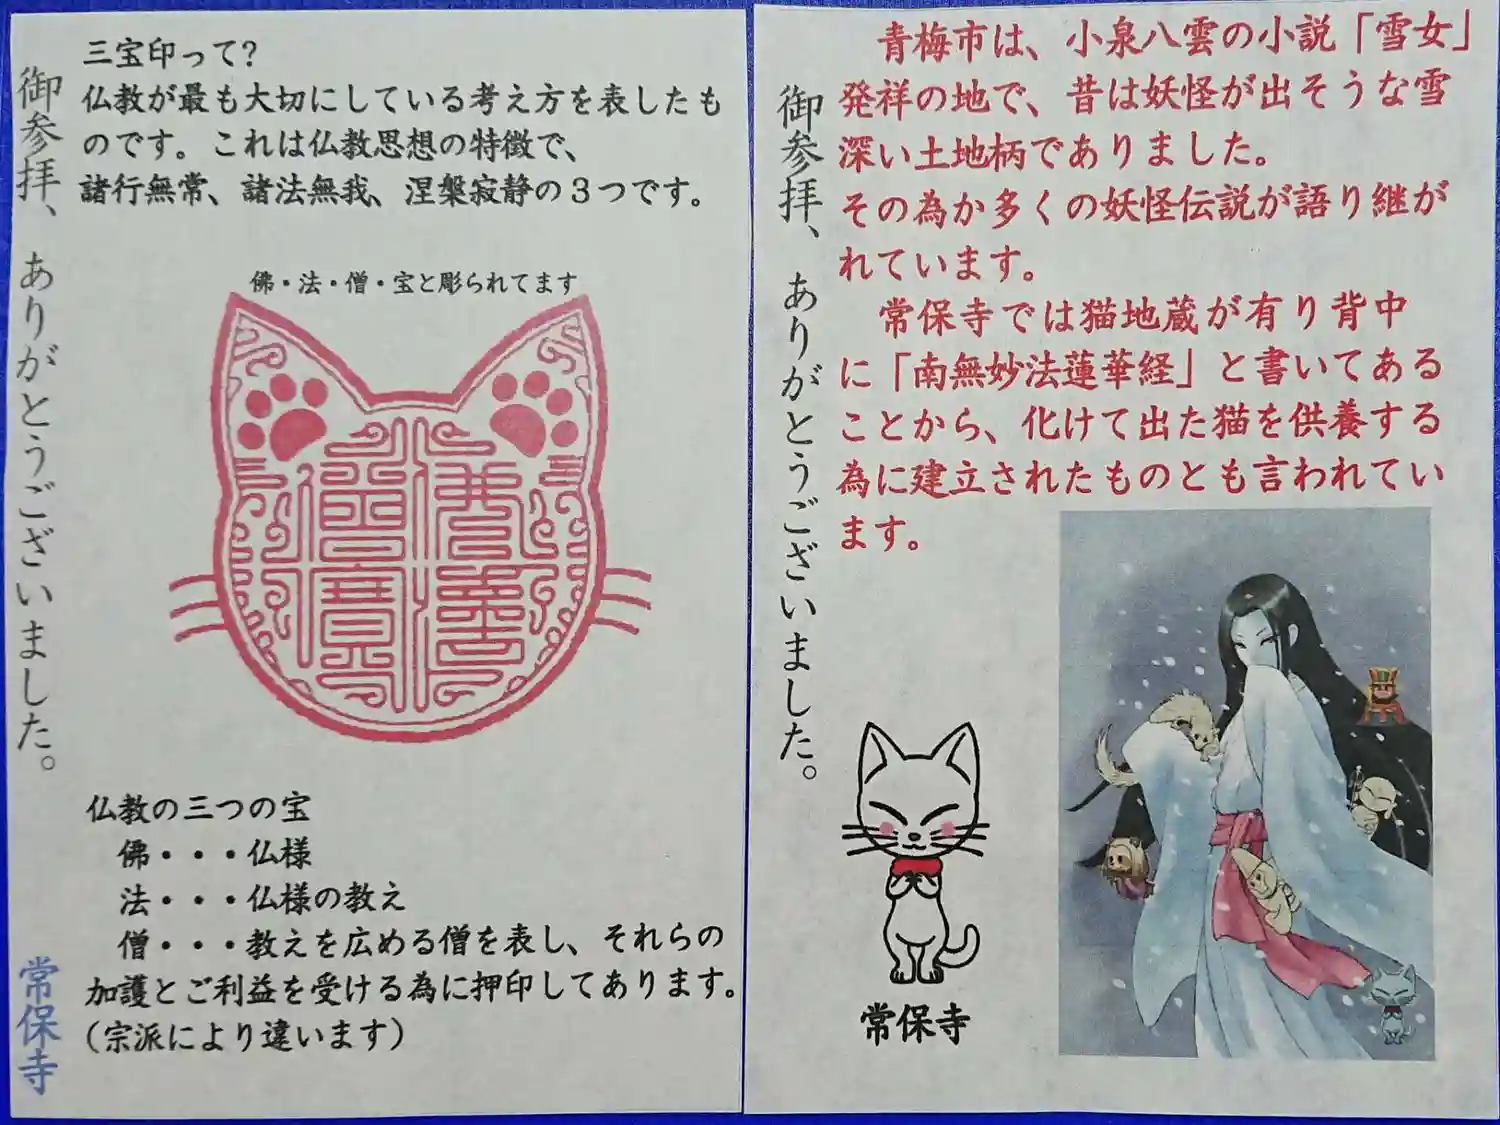 三宝印って?
仏教が最も大切にしている考え方を表したも
のです。これは仏教思想の特徴で、
諸行無常、諸法無我、涅槃寂静の3つです。
御参拝、ありがとうございました。
佛・法・僧・宝と彫られてます
仏教の三つの宝
佛・・・仏様
法・・・仏様の教え
僧・・・教えを広める僧を表し、それらの
加護とご利益を受ける為に押印してあります。
(宗派により違います)
常保寺
青梅市は、小泉八雲の小説「雪女」
発祥の地で、昔は妖怪が出そうな雪
深い土地柄でありました。
その為か多くの妖怪伝説が語り継が
れています。
常保寺では猫地蔵が有り背中
に「南無妙法蓮華経」と書いてある
ことから、化けて出た猫を供養する
為に建立されたものとも言われてい
ます。
御参拝、ありがとうございました。
常保寺